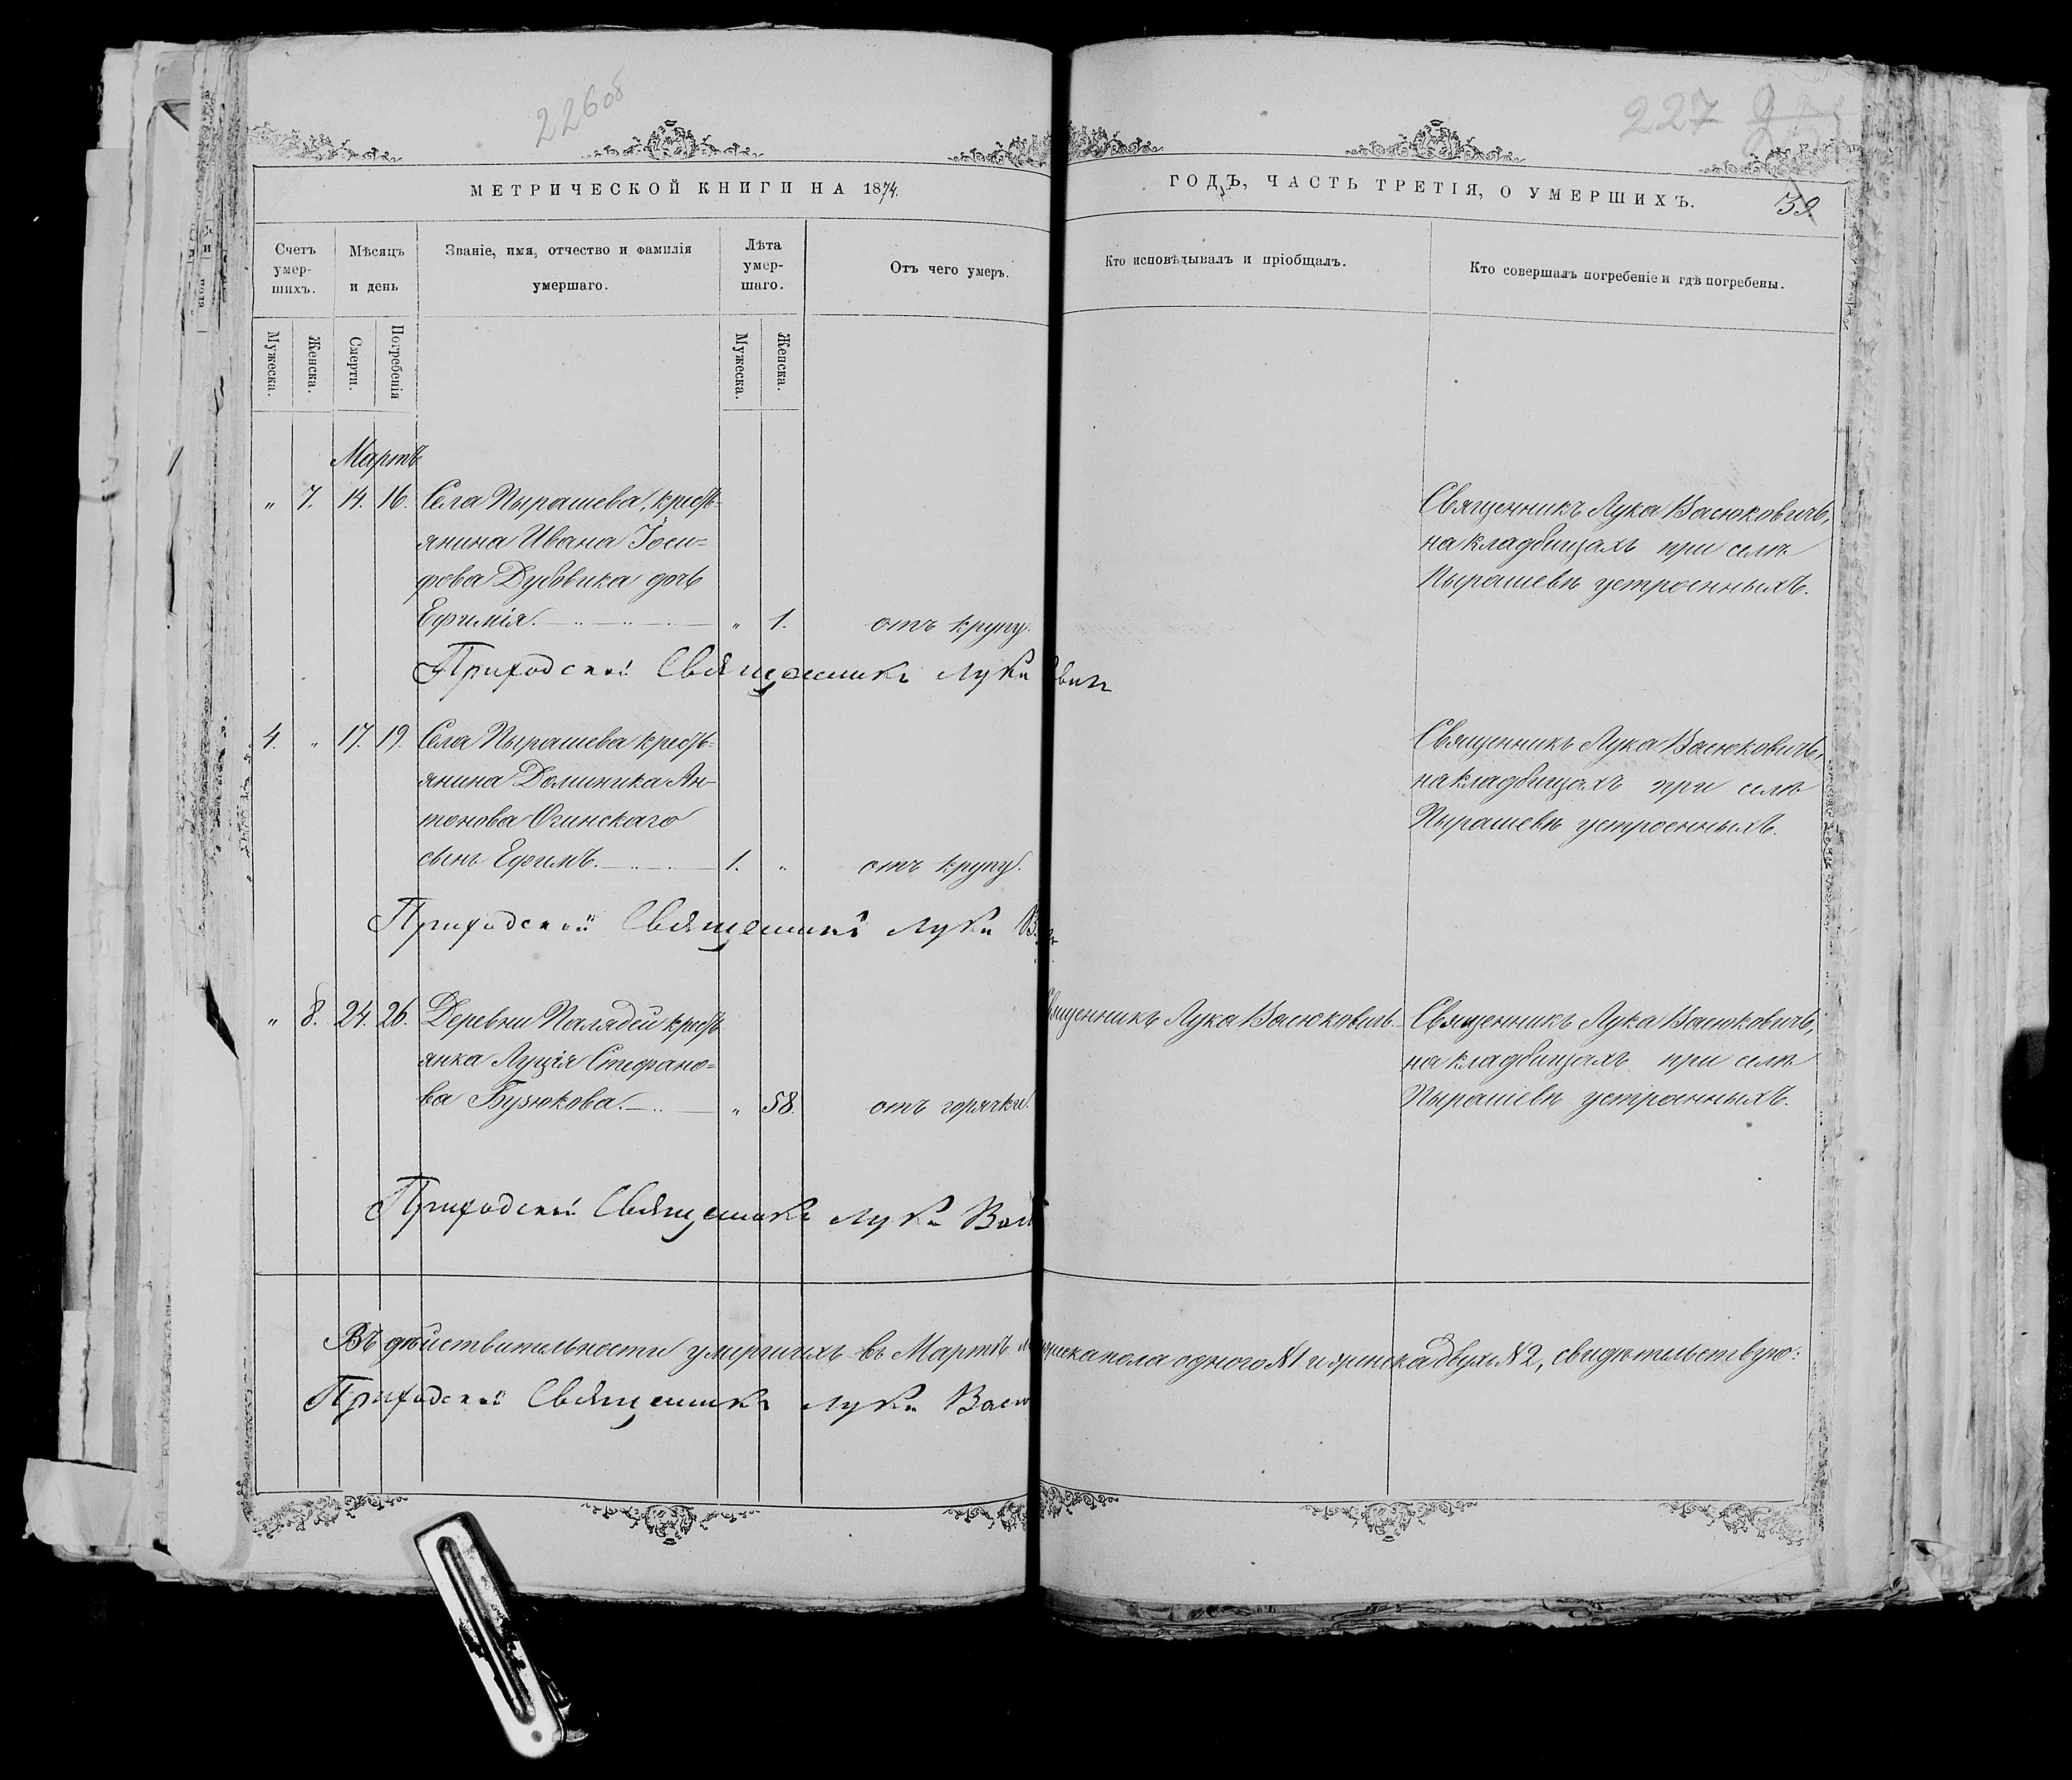 226об
227
МЕТРИЧЕСКОЙ КНИГИ НА 1874.
ГОДЪ, ЧАСТЬ ТРЕТІЯ, О УМЕРШИХЪ.
39
Счетъ умер-
шихъ.
Мѣсяцъ
и день
Званіе, имя, отчество и фамилія
умершаго.
Лѣта
умер-
шаго.
Отъ чего умеръ.
Кто исповѣдывалъ и пріобщалъ.
Кто совершалъ погребеніе и гдѣ погребены.
Мужеска.
Женска.
Смерти.
Погребенія
Мужеска.
Женска.
Мартъ
„ 7. 14. 16. Села Пырашева, кресть-
янина Ивана Іоси-
фова Дубовика дочь
Ефимія. „ 1. отъ крупу.
Священникъ Лука Васюковичъ,
на кладбищахъ при селѣ
Пырашевѣ устроенныхъ.
Приходскій Священникъ Лука
4. „ 17. 19. Села Пырашева кресть-
янина Доминика Ан-
тонова Огинскаго
сынъ Ефимъ. 1. „ отъ крупу.
Священникъ Лука Васюковичъ,
на кладбищахъ при селѣ
Пырашевѣ устроенныхъ.
Приходскій Священникъ Лука В
„ 8. 24. 26. Деревни Палядей кресть
янка Луція Стефано-
ва Бузюкова. „ 58. отъ горячки.
Священникъ Лука Васюковичъ
Священникъ Лука Васюковичъ,
на кладбищахъ при селѣ
Пырашевѣ устроенныхъ.
Приходскій Священникъ Лука Васю
Въ дѣйствительности умершихъ въ Мартѣ мужеска пола одного №1 и женска двухъ №2, свидѣтельствую:
Приходскій Священникъ Лука Васю